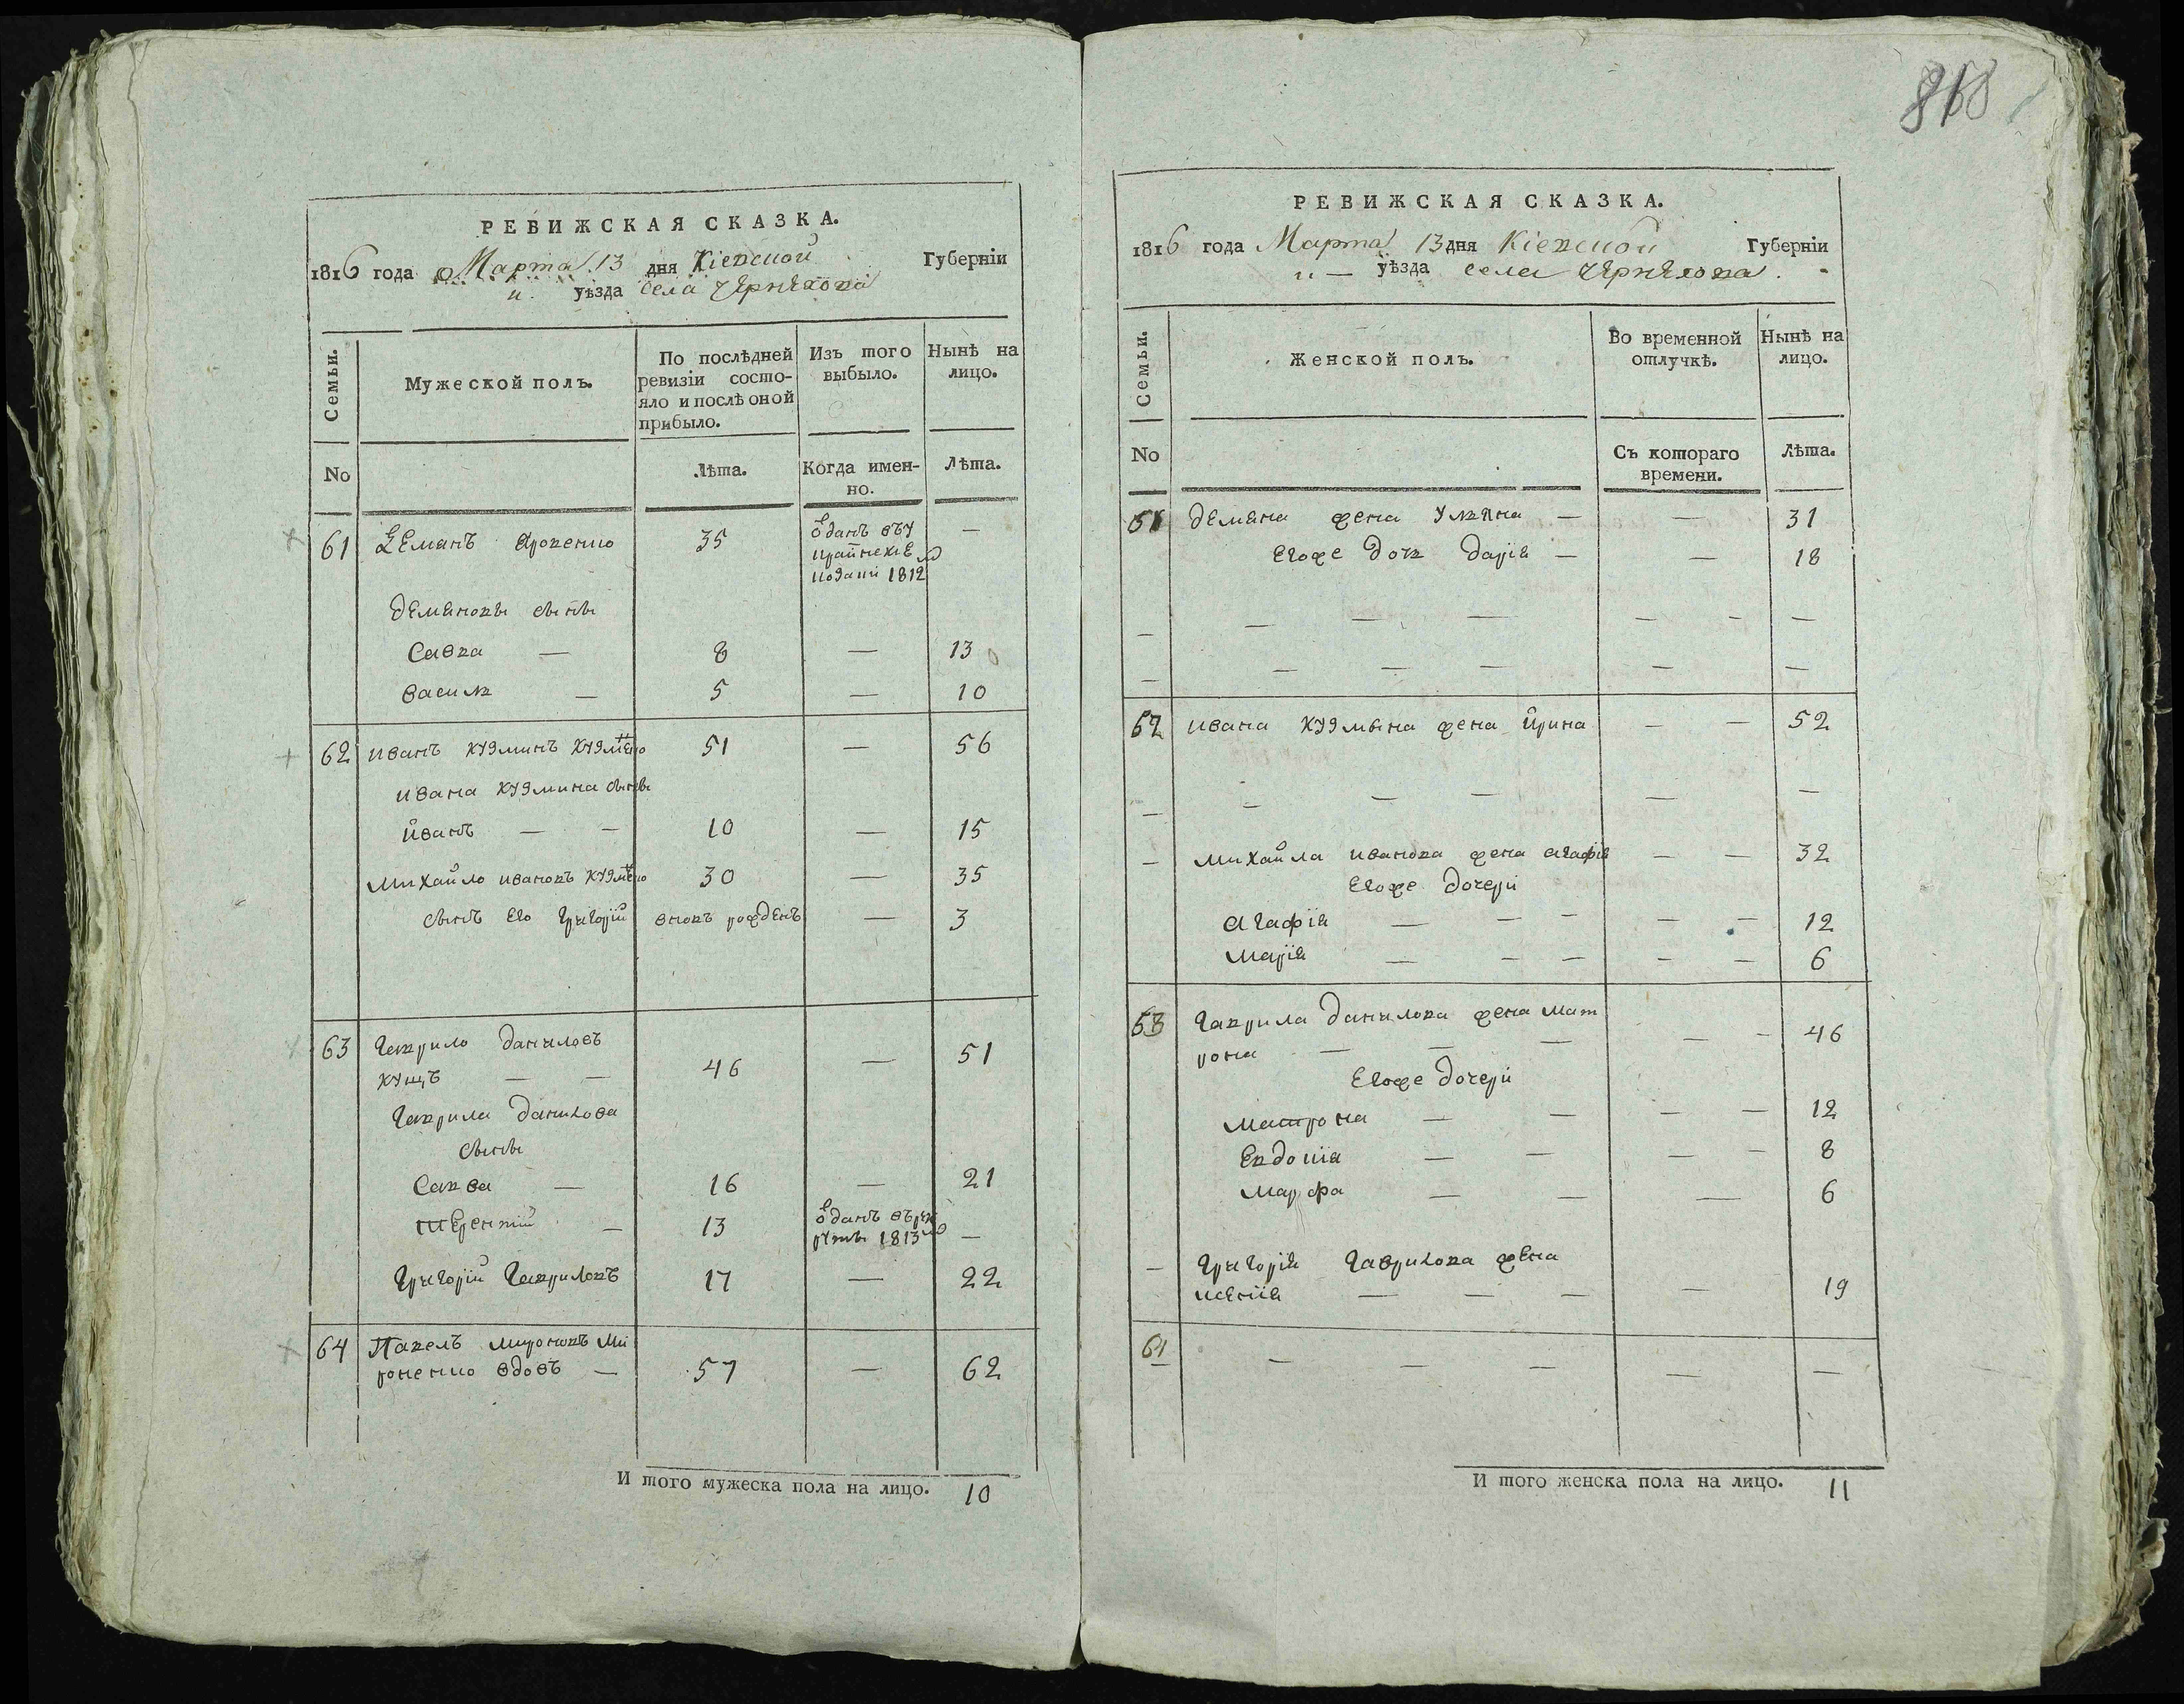 868
РЕВИЖСКАЯ СКАЗКА.
1816 года Марта 13 дня Кіевской Губерніи
и уѣзда села Черняхова
Семьи.
Мужеской полъ.
По послѣдней ревизіи состо-
яло и послѣ оной
прибыло.
Изъ того
выбыло.
Нынѣ на
лицо.
No
Лѣта.
Когда имен-
но.
Лѣта.
61 Демянъ 35 —
1812
Демяновы сыны
Савка — 8 — 13
Василь — 5 — 10
62 Иванъ Кузминъ 51 — 56
Ивана Кузмина сыны
Иванъ — — 10 — 15
Михайло Ивановъ 30 — 35
сынъ его Григорій вновь рожденъ — 3
63 Гаврило Даниловъ
Кущъ — — 46 — 51
Гаврила Данилова
сыны
Савва — 16 — 21
Терентій — 13 отданъ въ рек
руты 1813го —
Григорій Гавриловъ 17 — 22
64 Павелъ Мироновъ Ми
роненко вдовъ — 57 — 62
И того мужеска пола на лицо. 10
РЕВИЖСКАЯ СКАЗКА.
1816 года Марта 13 дня Кіевской Губерніи
и — уѣзда села Черняхова.
Семьи.
Женской полъ.
Во временной
отлучкѣ.
Нынѣ на
лицо.
No
Съ котораго
времени.
Лѣта.
61 Демяна жена Уляна — — 31
Егоже дочь Дарія — — 18
— — — — — — —
— — — — — —
62 Ивана Кузмина жена Ирина — — 52
— — — — — —
— Михайла Иванова жена Агафія — — 32
Егоже дочери
Агафія — — — — — 12
Марія — — — — — 6
63 Гаврила Данилова жена Мат
рона — — — — — 46
Егоже дочери
Матрона — — — — 12
Евдокія — — — — 8
Марфа — — — 6
— Григорія Гаврилова жена
Ксенія — — — — 19
64 — — — — —
И того женска пола на лицо. 11